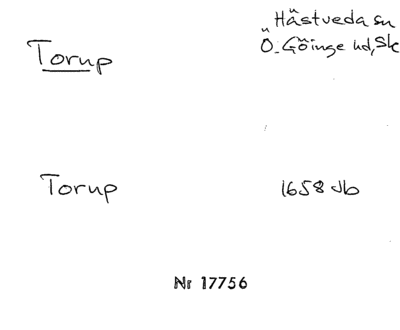 Torup
Hästveda sn
Ö. Göinge hd, Sk
Torup
1658 Jb
Nr 17756